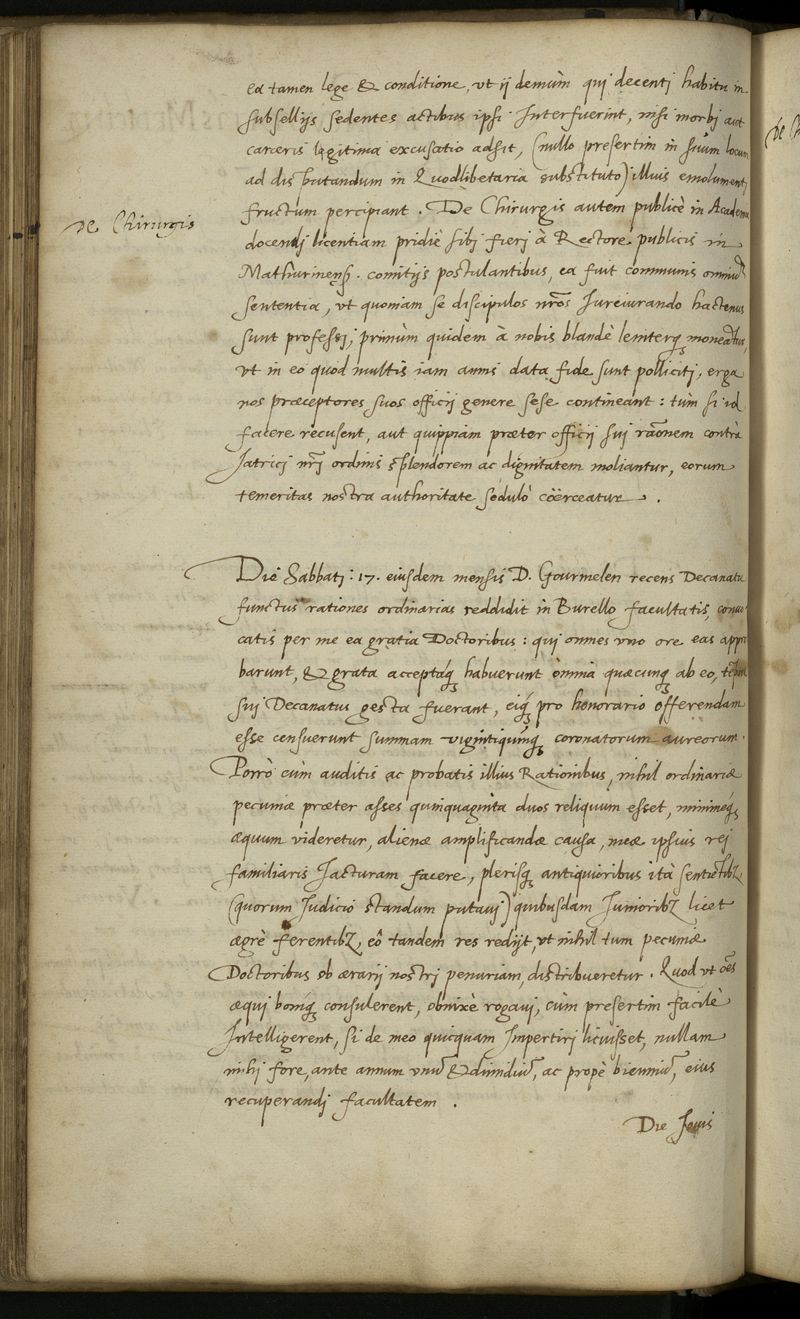 ea tamen lege & conditione, vt ij demùm qui decenti habitu in
subsellijs sedentes actibus ipsi Interfuerint, nisi morbi aut
carceris legitima excusatio adsit, (nullo presertim in suum locum
ad disputandum in Quodlibetaria substituto) illius emolumenti
fructum percipiant. De Chirurgis autem publicè in Academia
de Chirurgis
docendi licentiam pridiè sibi fieri à Rectore publicis in
Mathurinensi. comitijs postulantibus, ea fuit communis omniũ
sententia, vt quoniam se discipulos nr̃os Iureiurando hactenus
sunt professi, primùm quidem à nobis blandè leniterq; moneātur,
vt in eo quod multis iam annis data fide sunt polliciti, erga
nos præceptores suos officij genere sese contineant: tùm si id
facere recusent, aut quippiam præter officij sui rãonem contrà
Iatrici nr̃i ordinis splendorem ac dignitatem moliantur, eorum
temeritas nostra authoritate sedulò cöerceatur.
Die Sabbati: 17. eiusdem mensis D. Gourmelen recens Decanatu
functus rationes ordinarias reddidit in Burello facultatis, conuo
catis per me ea gratia Doctoribus: qui omnes vno ore eas appro
barunt, & grata acceptaq; habuerunt omnia quæcunq; ab eo, tẽpore
sui Decanatus gesta fuerant, eiq; pro honorario offerendam
esse censuerunt summam vigintiquinq; coronatorum aureorum.
Porrò cùm auditis ac probatis illius Rationibus, nihil ordinariæ
pecuniæ præter asses quinquaginta duos reliquum esset, minimeq;
æquum videretur, alienæ amplificandæ causa, meæ ipsius rei
familiaris Iacturam facere, plerisq; antiquioribus ità sentiẽtibz
(quorum Iudicio standum putaui) quibusdam Iunioribz licet
ægrè ferentibz, eò tandem res redijt, vt nihil tum pecuniæ
Doctoribus ob ærarij nostri penuriam, distribueretur. Quod vt oẽs
æqui boniq; consulerent, obnixè rogaui, cùm presertim facilè
Intelligerent, si de meo quicquam Impertiri licuisset, nullam
mihi fore, ante annum vnũ & dimidiũ, ac propè bienniũ, eius
recuperandi facultatem.
Die Iouis